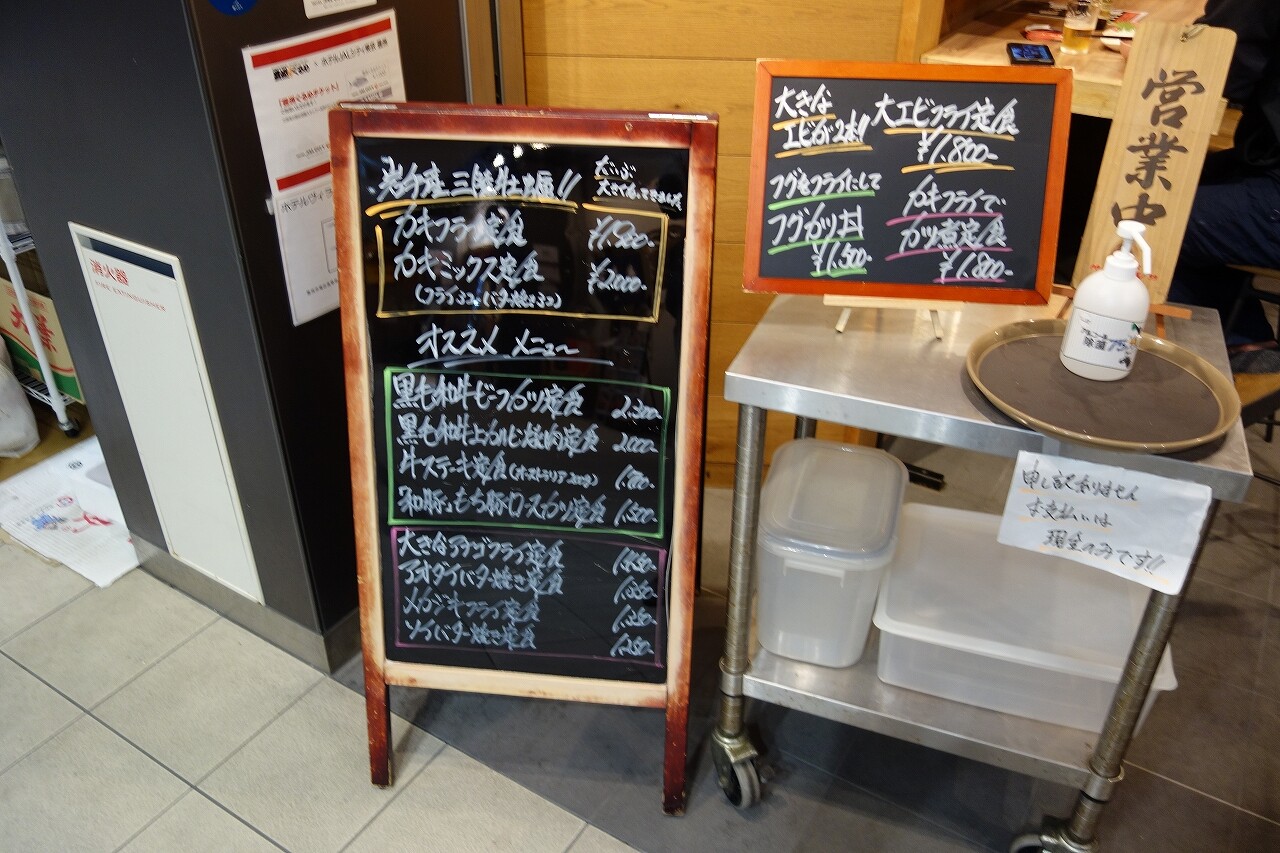 消火器
FIRE EXTINGUISHER
岩手産 三陸牡蠣!!
だいぶ
大きくなってきました
カキフライ定食 ¥1,900-
カキミックス定食 ¥2,000-
オススメ メニュー
黒毛和牛ビーフカツ定食 2,300-
黒毛和牛上カルビ焼肉定食 2,000-
牛ステーキ定食
和豚もち豚ロースカツ定食 1,500-
大きなアラゴフライ定食
アオダイバター焼き定食
メカジキフライ定食
ソイバター焼き定食 1,250-
大きな
エビが2本!!
大エビフライ定食
¥1,800-
フグをフライにして
フグカツ丼
¥1,500
カキフライで
カツ煮定食
¥1,800-
営業中
アルコール
除菌75
申し訳ありません
お支払いは
現金のみです!!